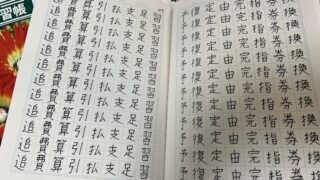 習帳
換換換換換換換換
券券券券券券券券
指指指指指指指指
完完完完完完完完
由由由由由由由由
定定定定定定定定
復復復復復復復復
予予予予予予予予
習習習習習習習習習
足足足足足足足足
支支支支支支支支
払払払払払払払払
引引引引引引引引
算算算算算算算算
費費費費費費費費
追追追追追追追